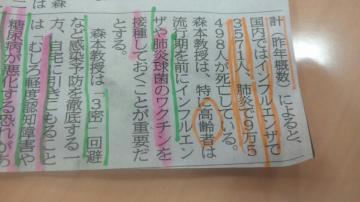 計（昨年概数）によると、
国内ではインフルエンザで
3571人、肺炎で9万5
498人が死亡している。
森本教授は、特に高齢者は
流行期を前にインフルエン
ザや肺炎球菌のワクチンを
接種しておくことが重要だ
とする。
森本教授は「3密」回避
など感染予防を徹底する一
方、自宅に引きこもること
は「むしろ軽度認知障害や
糖尿病が悪化する恐れがあ